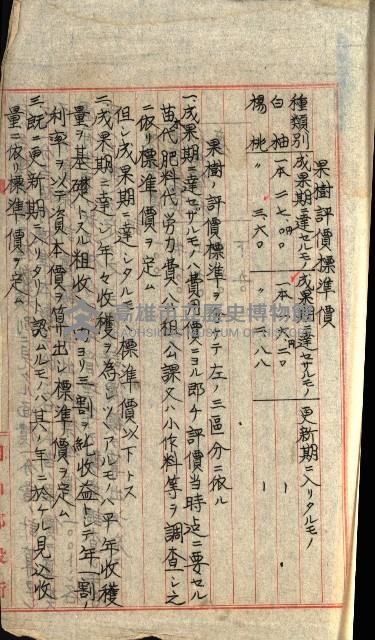 果樹評價標準價
種類別 成果期ニ達セルモノ 成果期ニ達セサルモノ 更新期ニ入リタルモノ
白柚 一本 二七〇〇円 一本 六二〇円 〃
楊桃 〃 三六〇 〃 二八八 〃
果樹ノ評價標準ヲ左ノ三區分ニ依ル
一、成果期ニ達セサルモノハ費用價ニヨル即チ評價當時迄ニ要セル
苗代肥料代勞力費又ハ租公課又ハ小作料等ヲ調査シ之
ニ依リ標準價ヲ定ム
但シ成果期ニ達シタルモノノ標準價以下トス
二、成果期ニ達シ年々收穫ヲ為シツヽアルモノハ平年收穫
量ヲ基礎トスル粗收入ヨリ三割ヲ純收益トシテ年一割ノ
利率ヲ以テ資本價ヲ算出シ標準價ヲ定ム
三、既ニ更新期ニ入リタリト認ムルモノハ其ノ年ニ於ケル見込收
量ニ依リ標準價ヲ定ム
高雄市立歷史博物館
KAOHSIUNG MUSEUM OF HISTORY